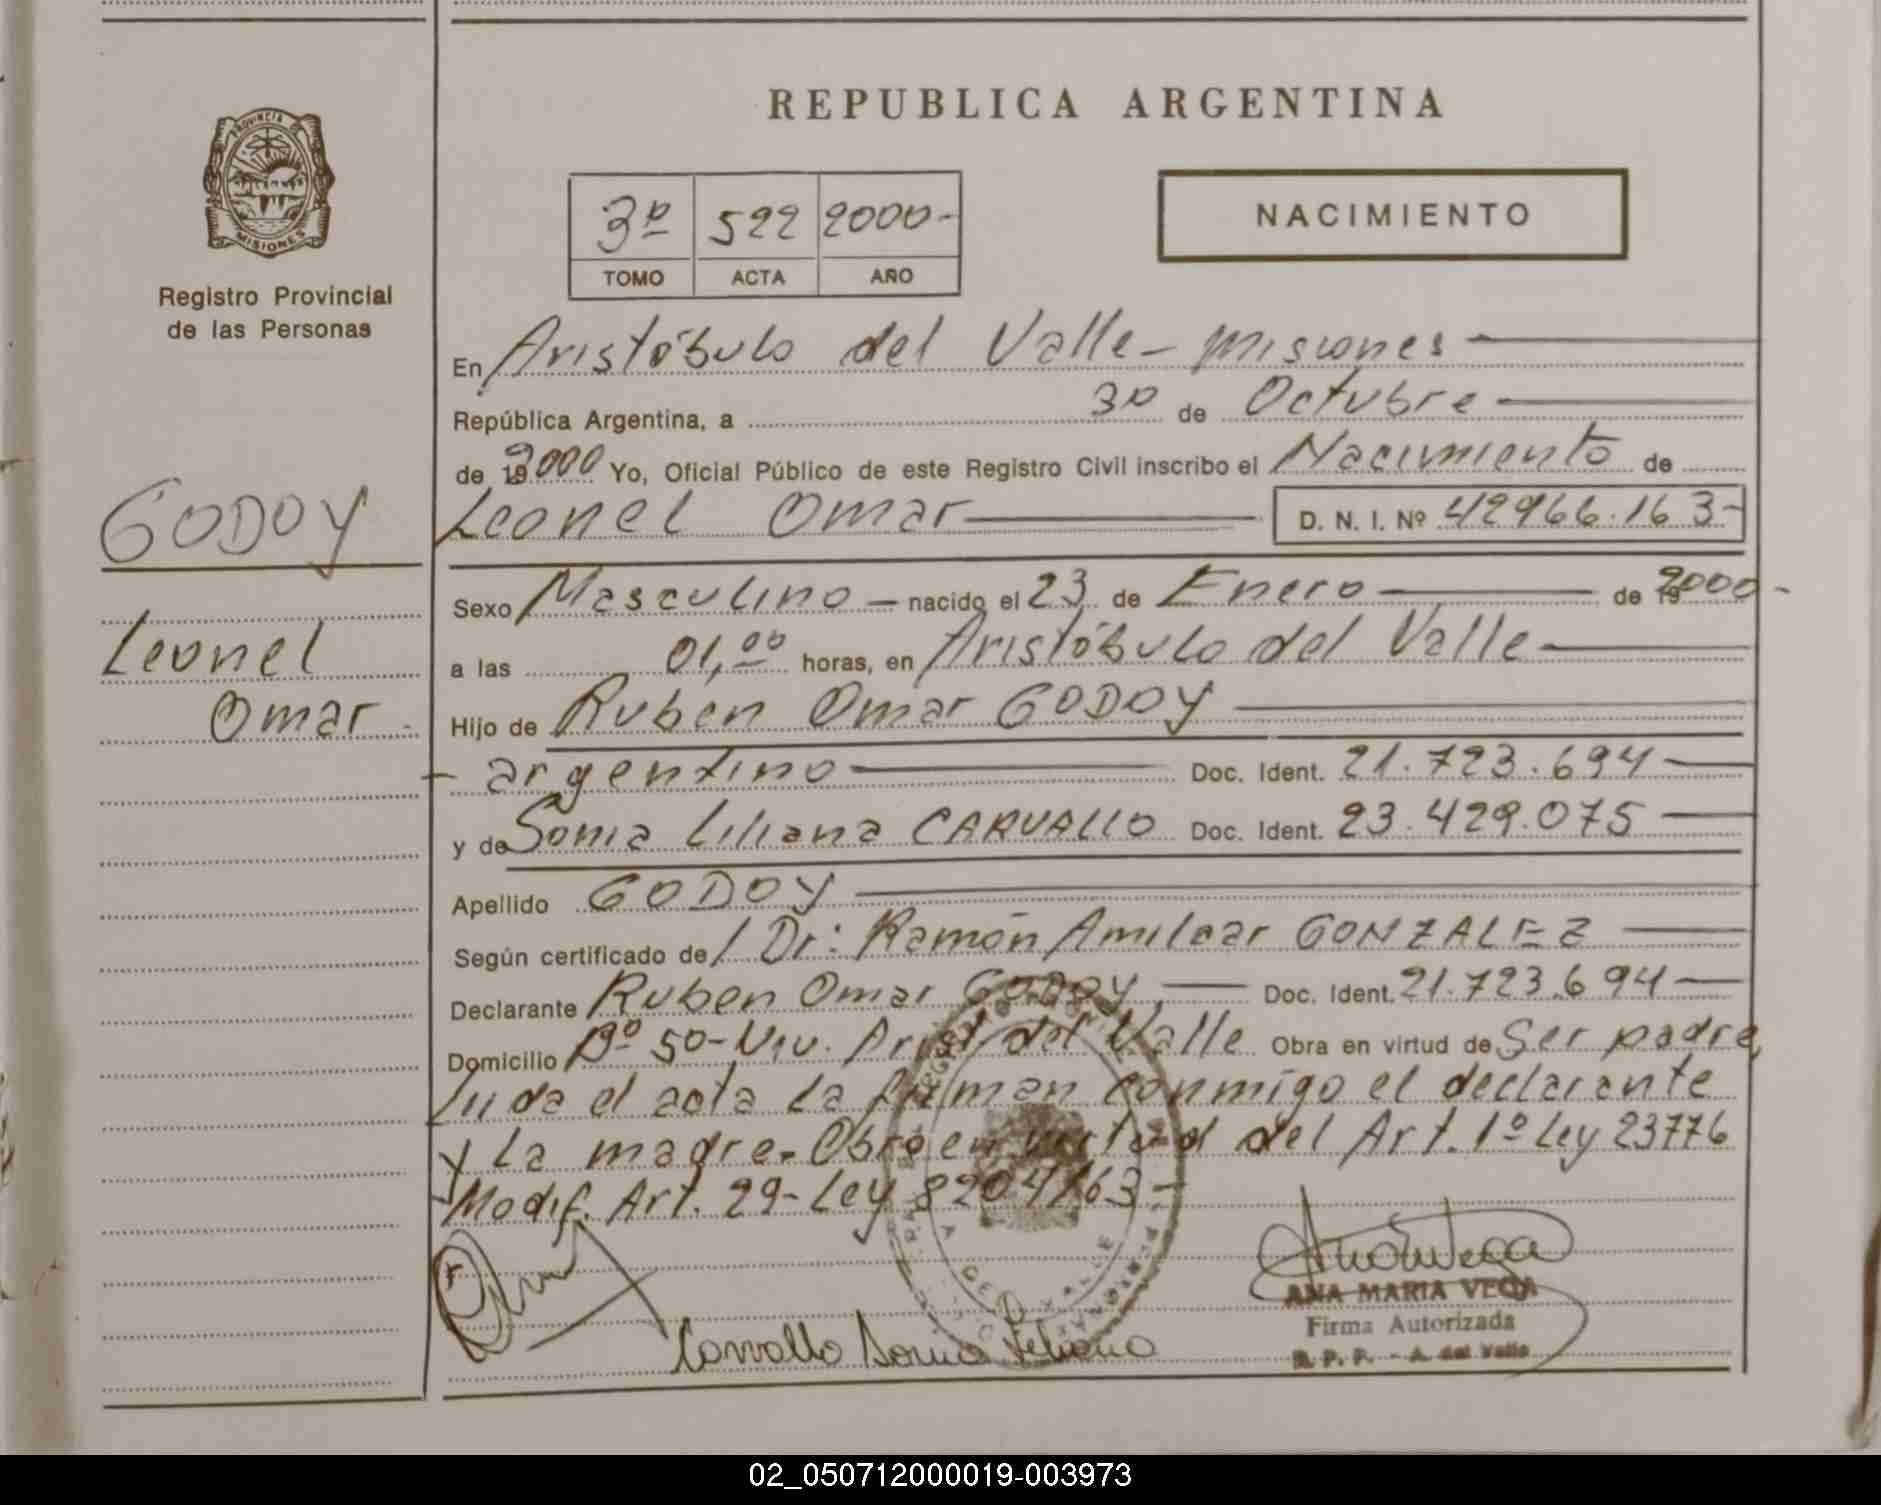 REPUBLICA ARGENTINA
PROVINCIA DE
MISIONES
Registro Provincial
de las Personas
3º 522 2000-
TOMO ACTA AÑO
NACIMIENTO
En Aristóbulo del Valle - Misiones
República Argentina, a 30 de Octubre
de 192000 Yo, Oficial Público de este Registro Civil inscribo el Nacimiento de
GODOY
Leonel Omar D. N. I. Nº 42966.163-
Sexo Masculino - nacido el 23 de Enero de 192000-
Leonel
a las 01,00 horas, en Aristóbulo del Valle
Omar
Hijo de Ruben Omar GODOY
- argentino Doc. Ident. 21.723.694
y de Sonia Liliana CARVALLO Doc. Ident. 23.429.075
Apellido GODOY
Según certificado de Dr: Ramón Amilcar GONZALEZ
Declarante Ruben Omar GODOY, Doc. Ident. 21.723.694
Domicilio Bº 50-Viv. Arist. del Valle Obra en virtud de Ser padre,
Luda el acta la firman conmigo el declarante
y La madre. Obro en virtud del Art. 1º Ley 23776
Modif. Art. 29- Ley 8204/63-
Carvallo Sonia Liliana
ANA MARIA VEGA
Firma Autorizada
R. P. P. - A. del Valle
02_050712000019-003973